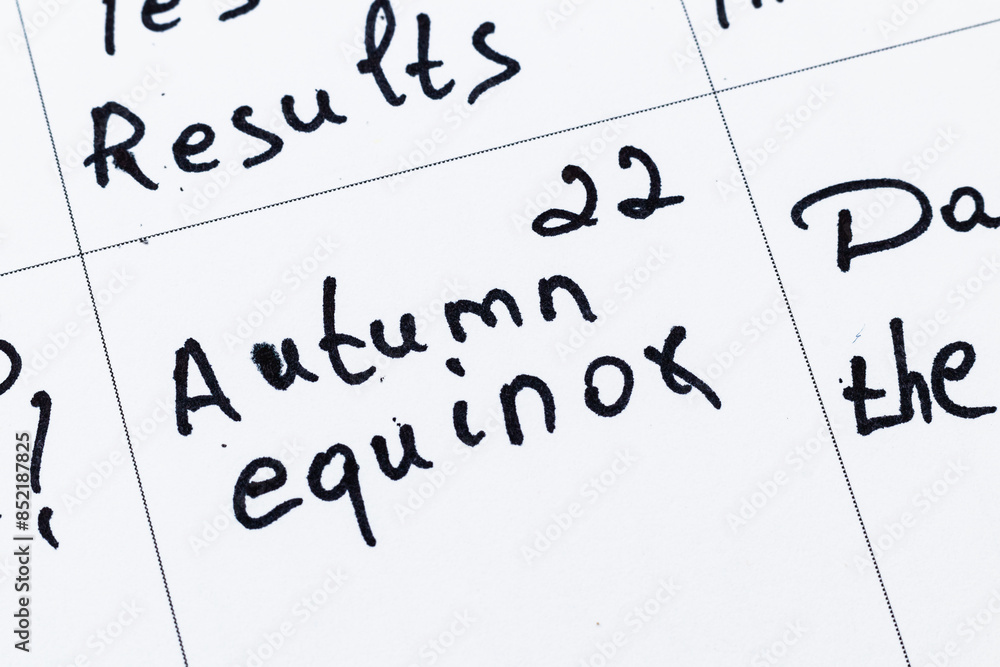 Results
22
Autumn
equinox
Da
the
!
Adobe Stock | #852187825